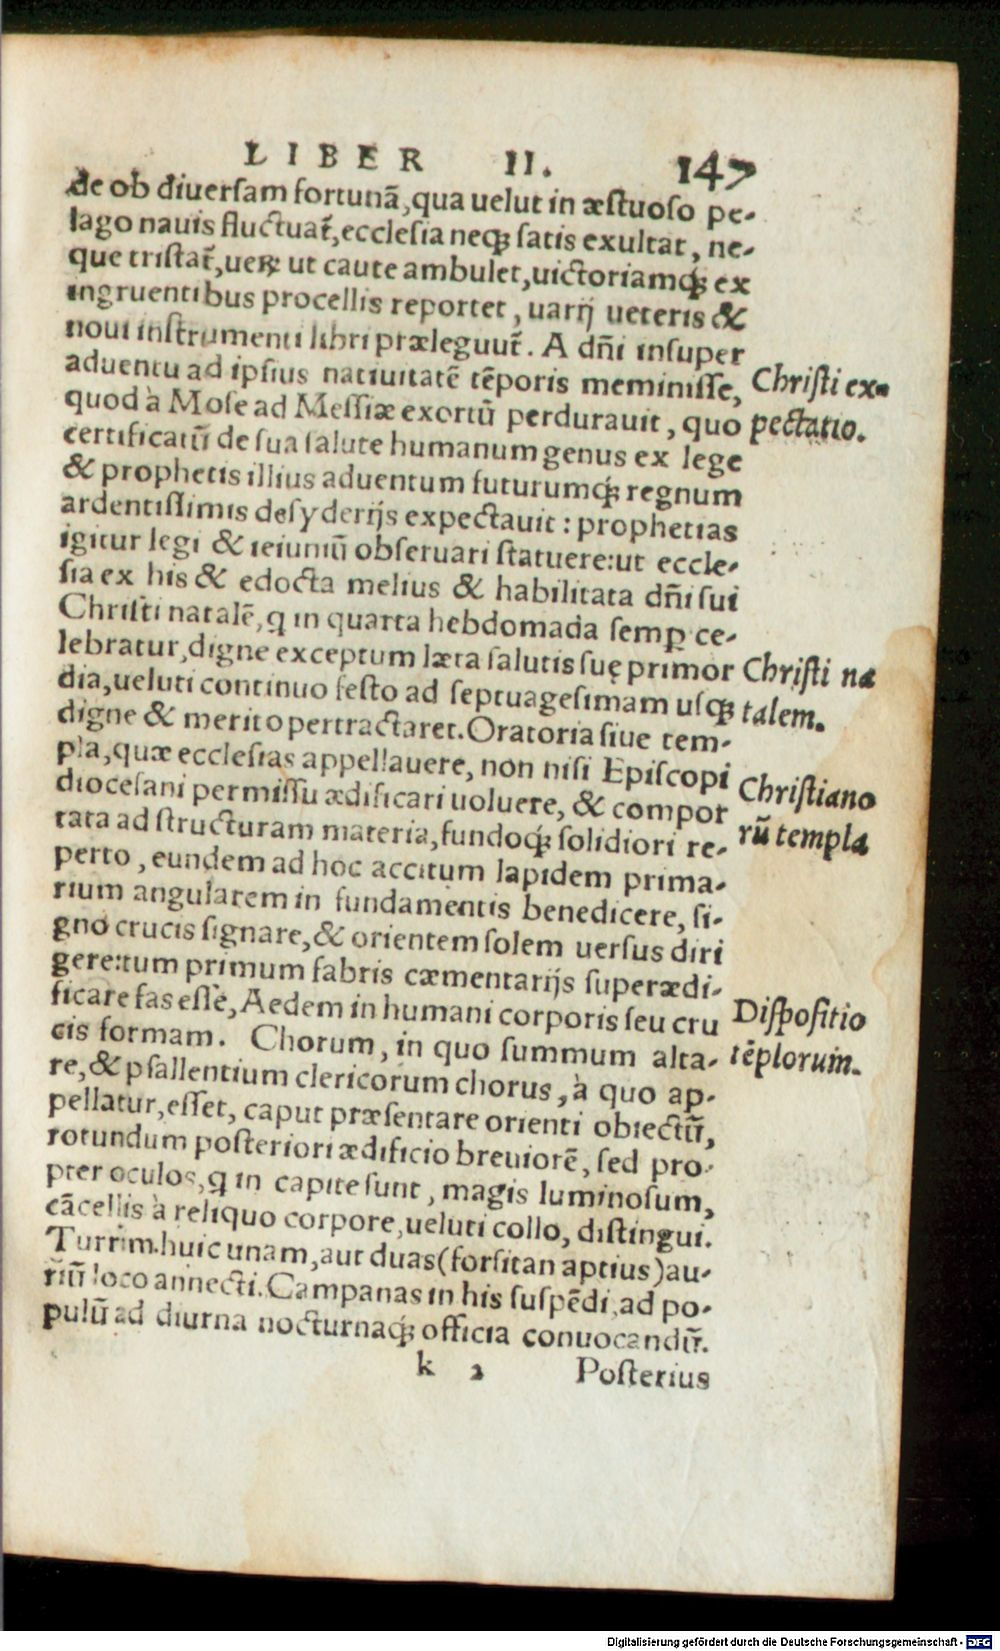 LIBER II. 147
de ob diuersam fortunã, qua uelut in æstuoso pe-
lago nauis fluctuat᷑, ecclesia neqꝫ satis exultat, ne-
que tristat᷑, ueꝝ ut caute ambulet, uictoriamqꝫ ex
ingruentibus procellis reportet, uarij ueteris &
noui instrumenti libri præleguut᷑. A dñi insuper
aduentu ad ipsius natiuitatẽ tẽporis meminisse,
Christi ex-
quod à Mose ad Messiæ exortũ perdurauit, quo
pectatio.
certificatũ de sua salute humanum genus ex lege
& prophetis illius aduentum futurumqꝫ regnum
ardentissimis desyderijs expectauit: prophetias
igitur legi & ieiuniũ obseruari statuere: ut eccle-
sia ex his & edocta melius & habilitata dñi sui
Christi natalẽ, q in quarta hebdomada semꝑ ce-
lebratur, digne exceptum læta salutis suę primor
Christi na
dia, ueluti continuo festo ad septuagesimam usqꝫ
talem.
digne & merito pertractaret. Oratoria siue tem-
pla, quæ ecclesias appellauere, non nisi Episcopi
Christiano
diocesani permissu ædificari uoluere, & compor
rũ templa
tata ad structuram materia, fundoqꝫ solidiori re-
perto, eundem ad hoc accitum lapidem prima-
rium angularem in fundamentis benedicere, si-
gno crucis signare, & orientem solem uersus diri
gere: tum primum fabris cæmentarijs superædi-
ficare fas esse, Aedem in humani corporis seu cru
Dispositio
cis formam. Chorum, in quo summum alta-
tẽplorum.
re, & psallentium clericorum chorus, à quo ap-
pellatur, esset, caput præsentare orienti obiectũ,
rotundum posteriori ædificio breuiorẽ, sed pro-
pter oculos, q in capite sunt, magis luminosum,
cãcellis à reliquo corpore, ueluti collo, distingui.
Turrim huic unam, aut duas (forsitan aptius) au-
riũ loco annecti. Campanas in his suspẽdi, ad po-
pulũ ad diurna nocturnaqꝫ officia conuocandũ.
k 2 Posterius
Digitalisierung gefördert durch die Deutsche Forschungsgemeinschaft - DFG